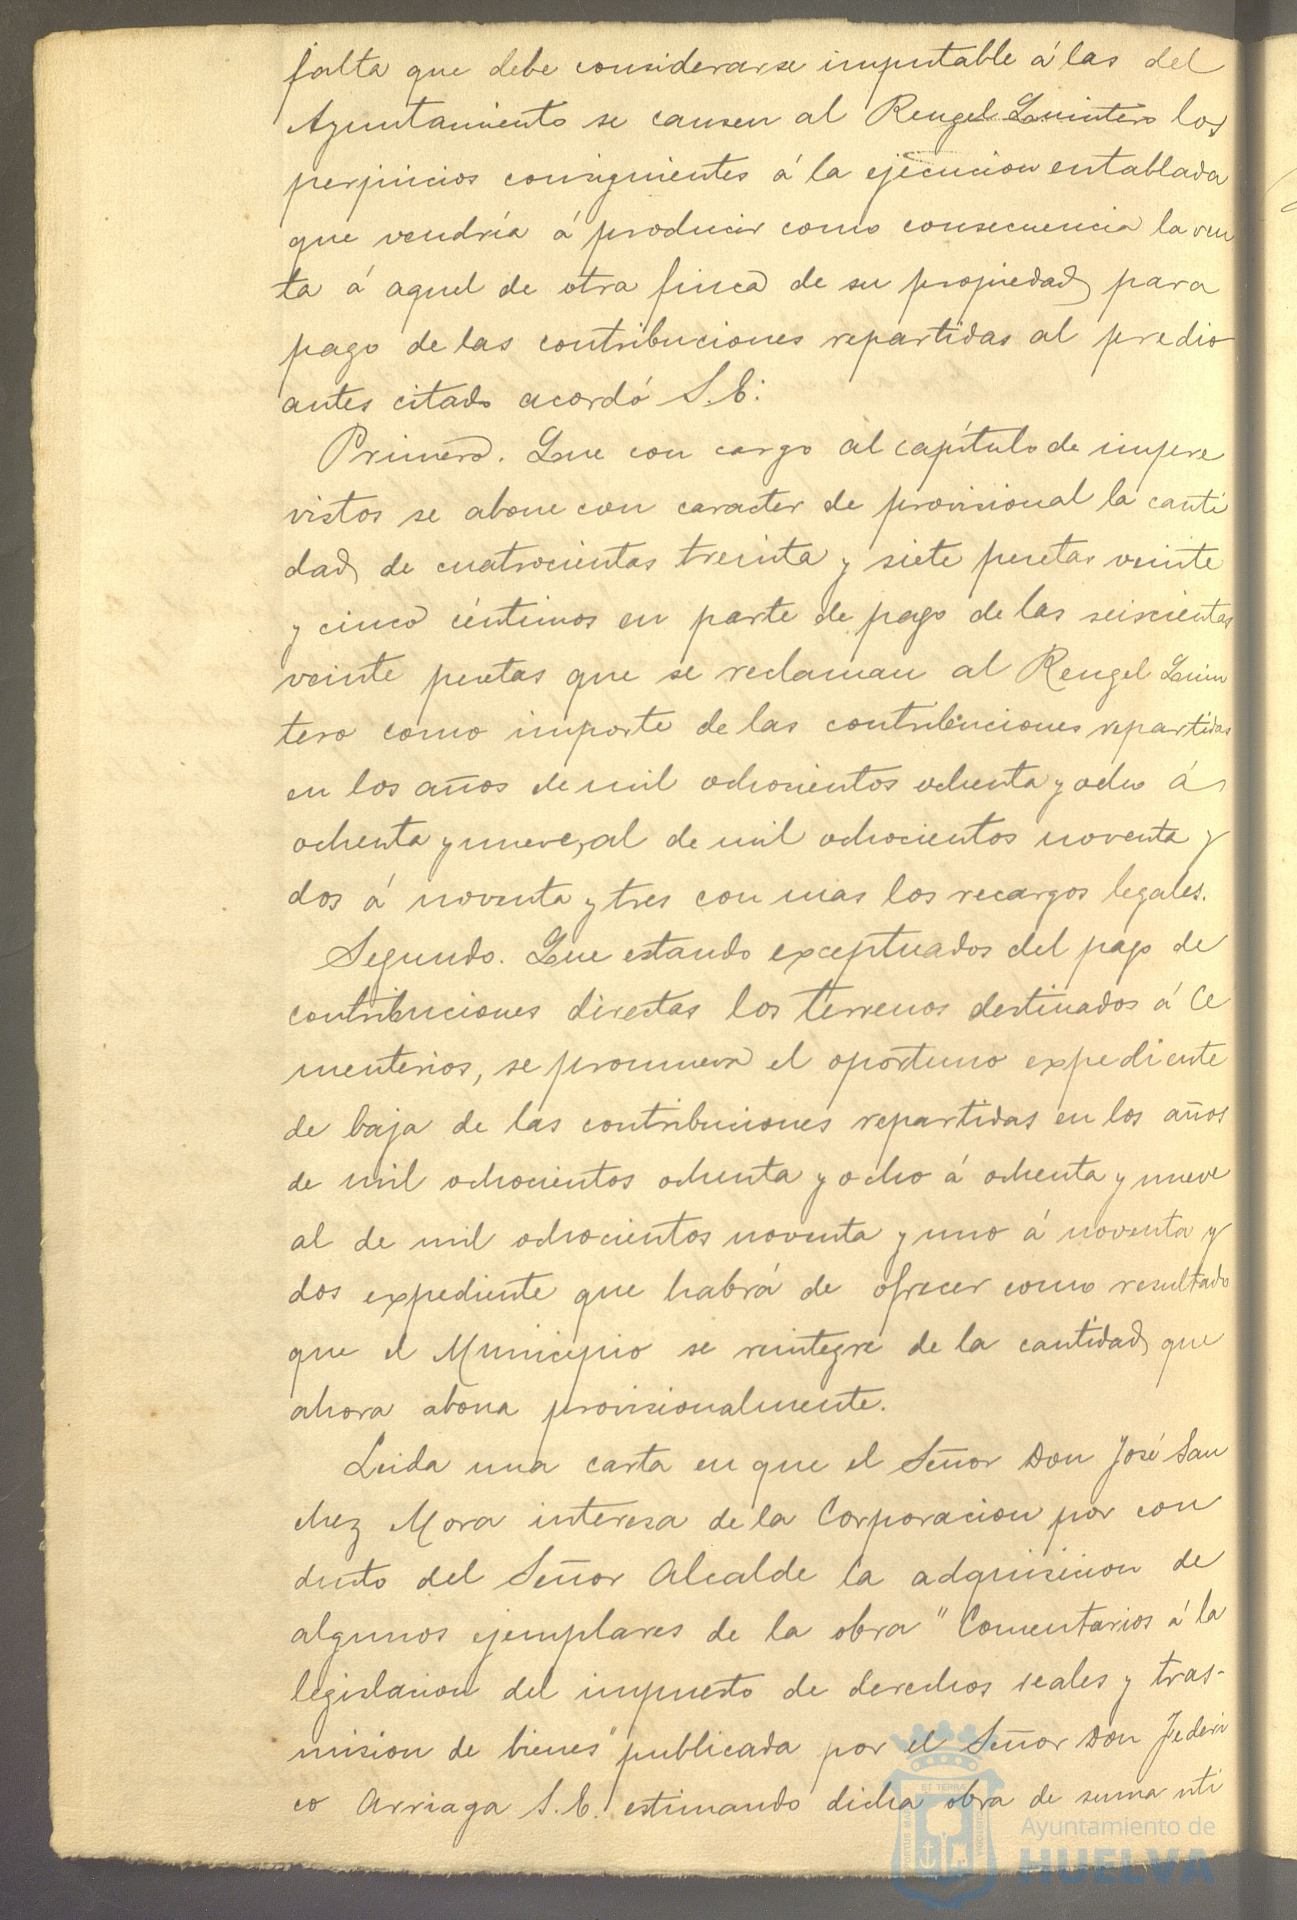 falta que debe considerarse imputable á las del
Ayuntamiento se causen al Rengel Quintero los
perjuicios consiguientes á la ejecucion entablada
que vendría á producir como consecuencia la ven
ta á aquel de otra finca de su propiedad para
pago de las contribuciones repartidas al predio
antes citado acordó S.E:
Primero. Que con cargo al capítulo de impre
vistos se abone con caracter de provisional la canti
dad de cuatrocientas treinta y siete pesetas veinte
y cinco céntimos en parte de pago de las seiscientas
veinte pesetas que se reclaman al Rengel Quin
tero como importe de las contribuciones repartidas
en los años de mil ochocientos ochenta y ocho á
ochenta y nueve, al de mil ochocientos noventa y
dos á noventa y tres con mas los recargos legales.
Segundo. Que estando exceptuados del pago de
contribuciones directas los terrenos destinados á Ce
menterios, se promueva el oportuno expediente
de baja de las contribuciones repartidas en los años
de mil ochocientos ochenta y ocho á ochenta y nueve
al de mil ochocientos noventa y uno á noventa y
dos expediente que habrá de ofrecer como resultado
que el Municipio se reintegre de la cantidad que
ahora abona provisionalmente.
Leida una carta en que el Señor Don José San
chez Mora interesa de la Corporacion por con
ducto del Señor Alcalde la adquisicion de
algunos ejemplares de la obra "Comentarios á la
legislacion del impuesto de derechos reales y tras-
mision de bienes" publicada por el Señor Don Federi
co Arriaga S.E. estimando dicha obra de suma uti
Ayuntamiento de
HUELVA